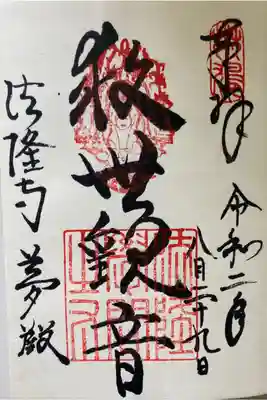 奉拝
令和二年
八月二十九日
救世観音
法隆寺 夢殿